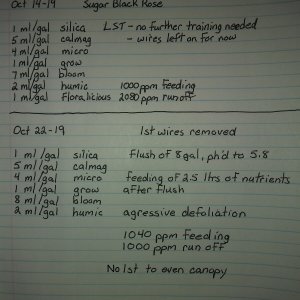 Oct 14-19 Sugar Black Rose
1 ml/gal silica LST - no further training needed
5 ml/gal calmag - wires left on for now
4 ml/gal micro
1 ml/gal grow
7 ml/gal bloom
2 ml/gal humic 1000 ppm feeding
1 ml/gal Floralicious 2080 ppm runoff
Oct 22-19 1st wires removed
1 ml/gal silica Flush of 8 gal, ph'd to 5.8
5 ml/gal calmag
4 ml/gal micro feeding of 2.5 ltrs of nutrients
1 ml/gal grow after flush
8 ml/gal bloom
2 ml/gal humic agressive defoliation
1040 ppm feeding
1000 ppm run off
No lst to even canopy